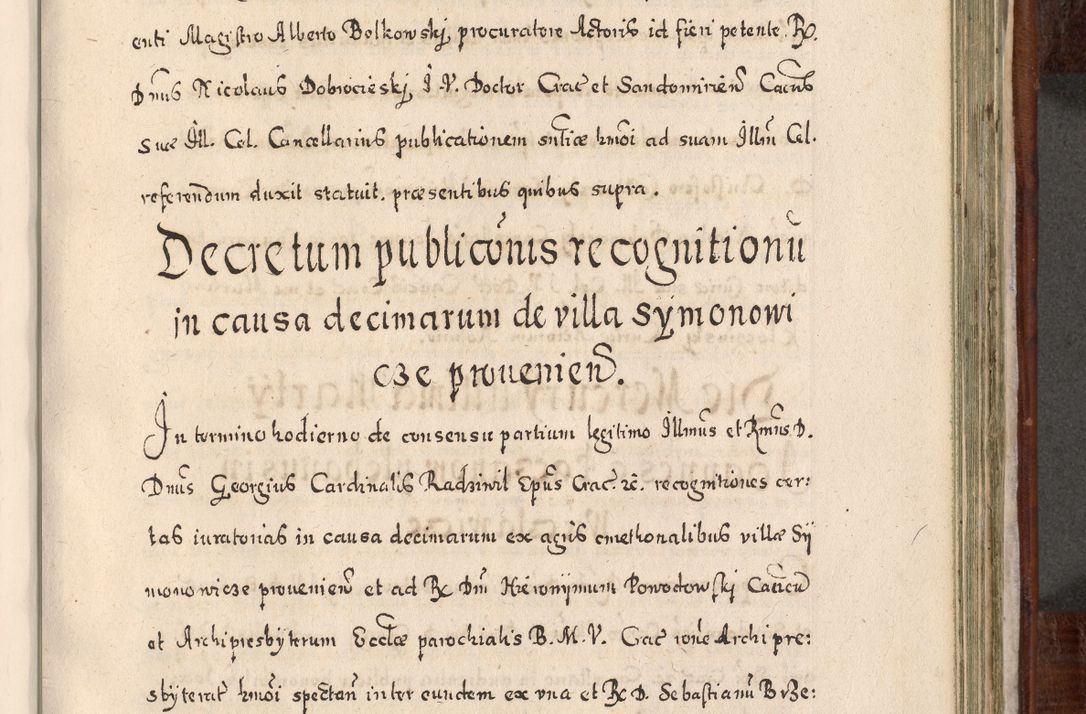 enti Magistro Alberto Bolkowskj, procuratore Actoris id fieri petente. R.
Dnus Nicolaus Dobrocieskj I. V. Doctor Crac et Sandomirien Cacus
Suæ Ill. Cel. Cancellarius publicationem sntiæ hmoi ad suam Illm Cel.
referendum duxit statuit. præsentibus quibus supra.
Decretum publiconis recognitionu
in causa decimarum de villa Symonowi
cze prouenien.
In termino hodierno de consensu partium legitimo Illmus et Rmus D.
Dnus Georgius Cardinalis Radziwil Epus Crac. rc. recognitiones cer:
tas iuratorias in causa decimarum ex agris cmethonalibus villæ Sy
monowicze prouenien et ad R. Dm Hieronymum Powodowskj Cacicu
et Archipresbyterum Ecclæ parochialis B. M. V. Crac rone Archipre:
sbyterat hmoi spectan inter eundem ex vna et R. D. Sebastianu Brze: